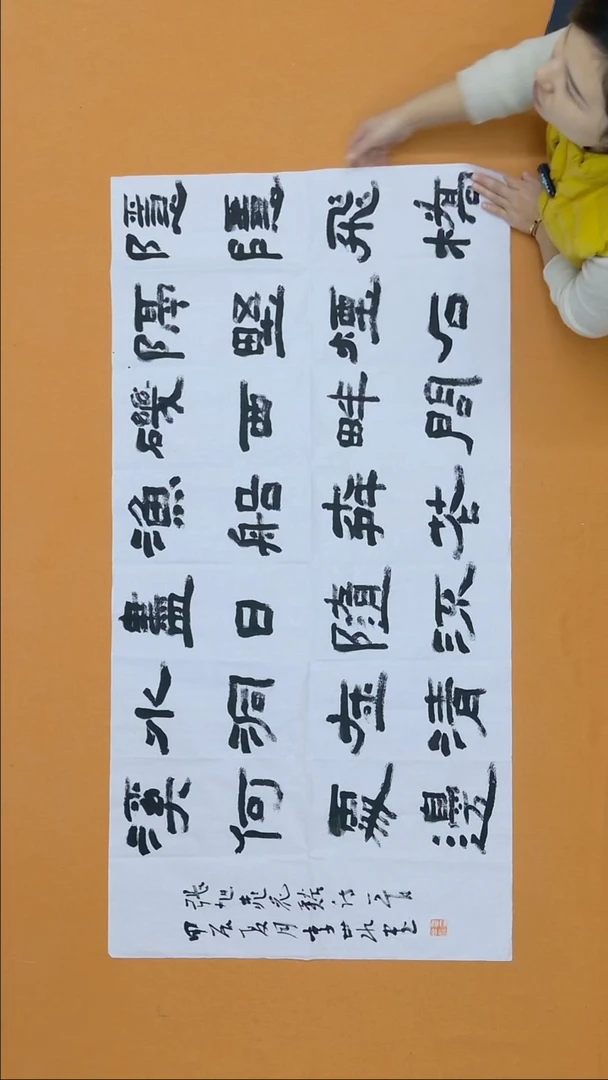 隱隱飛橋
隔野煙石
磯西畔問
漁船桃花
盡日隨流
水洞在清
溪何處邊
張旭桃花谿詩一首
甲辰夏月李